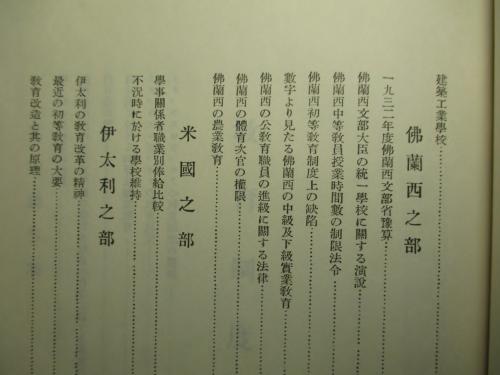 建築工業學校
佛蘭西之部
一九三二年度佛蘭西文部省豫算
佛蘭西文部大臣の統一學校に關する演說
佛蘭西中等敎員授業時間數の制限法令
佛蘭西初等敎育制度上の缺陷
數字より見たる佛蘭西の中級及下級實業敎育
佛蘭西の公敎育職員の進級に關する法律
佛蘭西の體育次官の權限
佛蘭西の農業敎育
米國之部
學事關係者職業別俸給比較
不況時に於ける學校維持
伊太利之部
伊太利の敎育改革の精神
最近の初等敎育の大要
敎育改造と其の原理